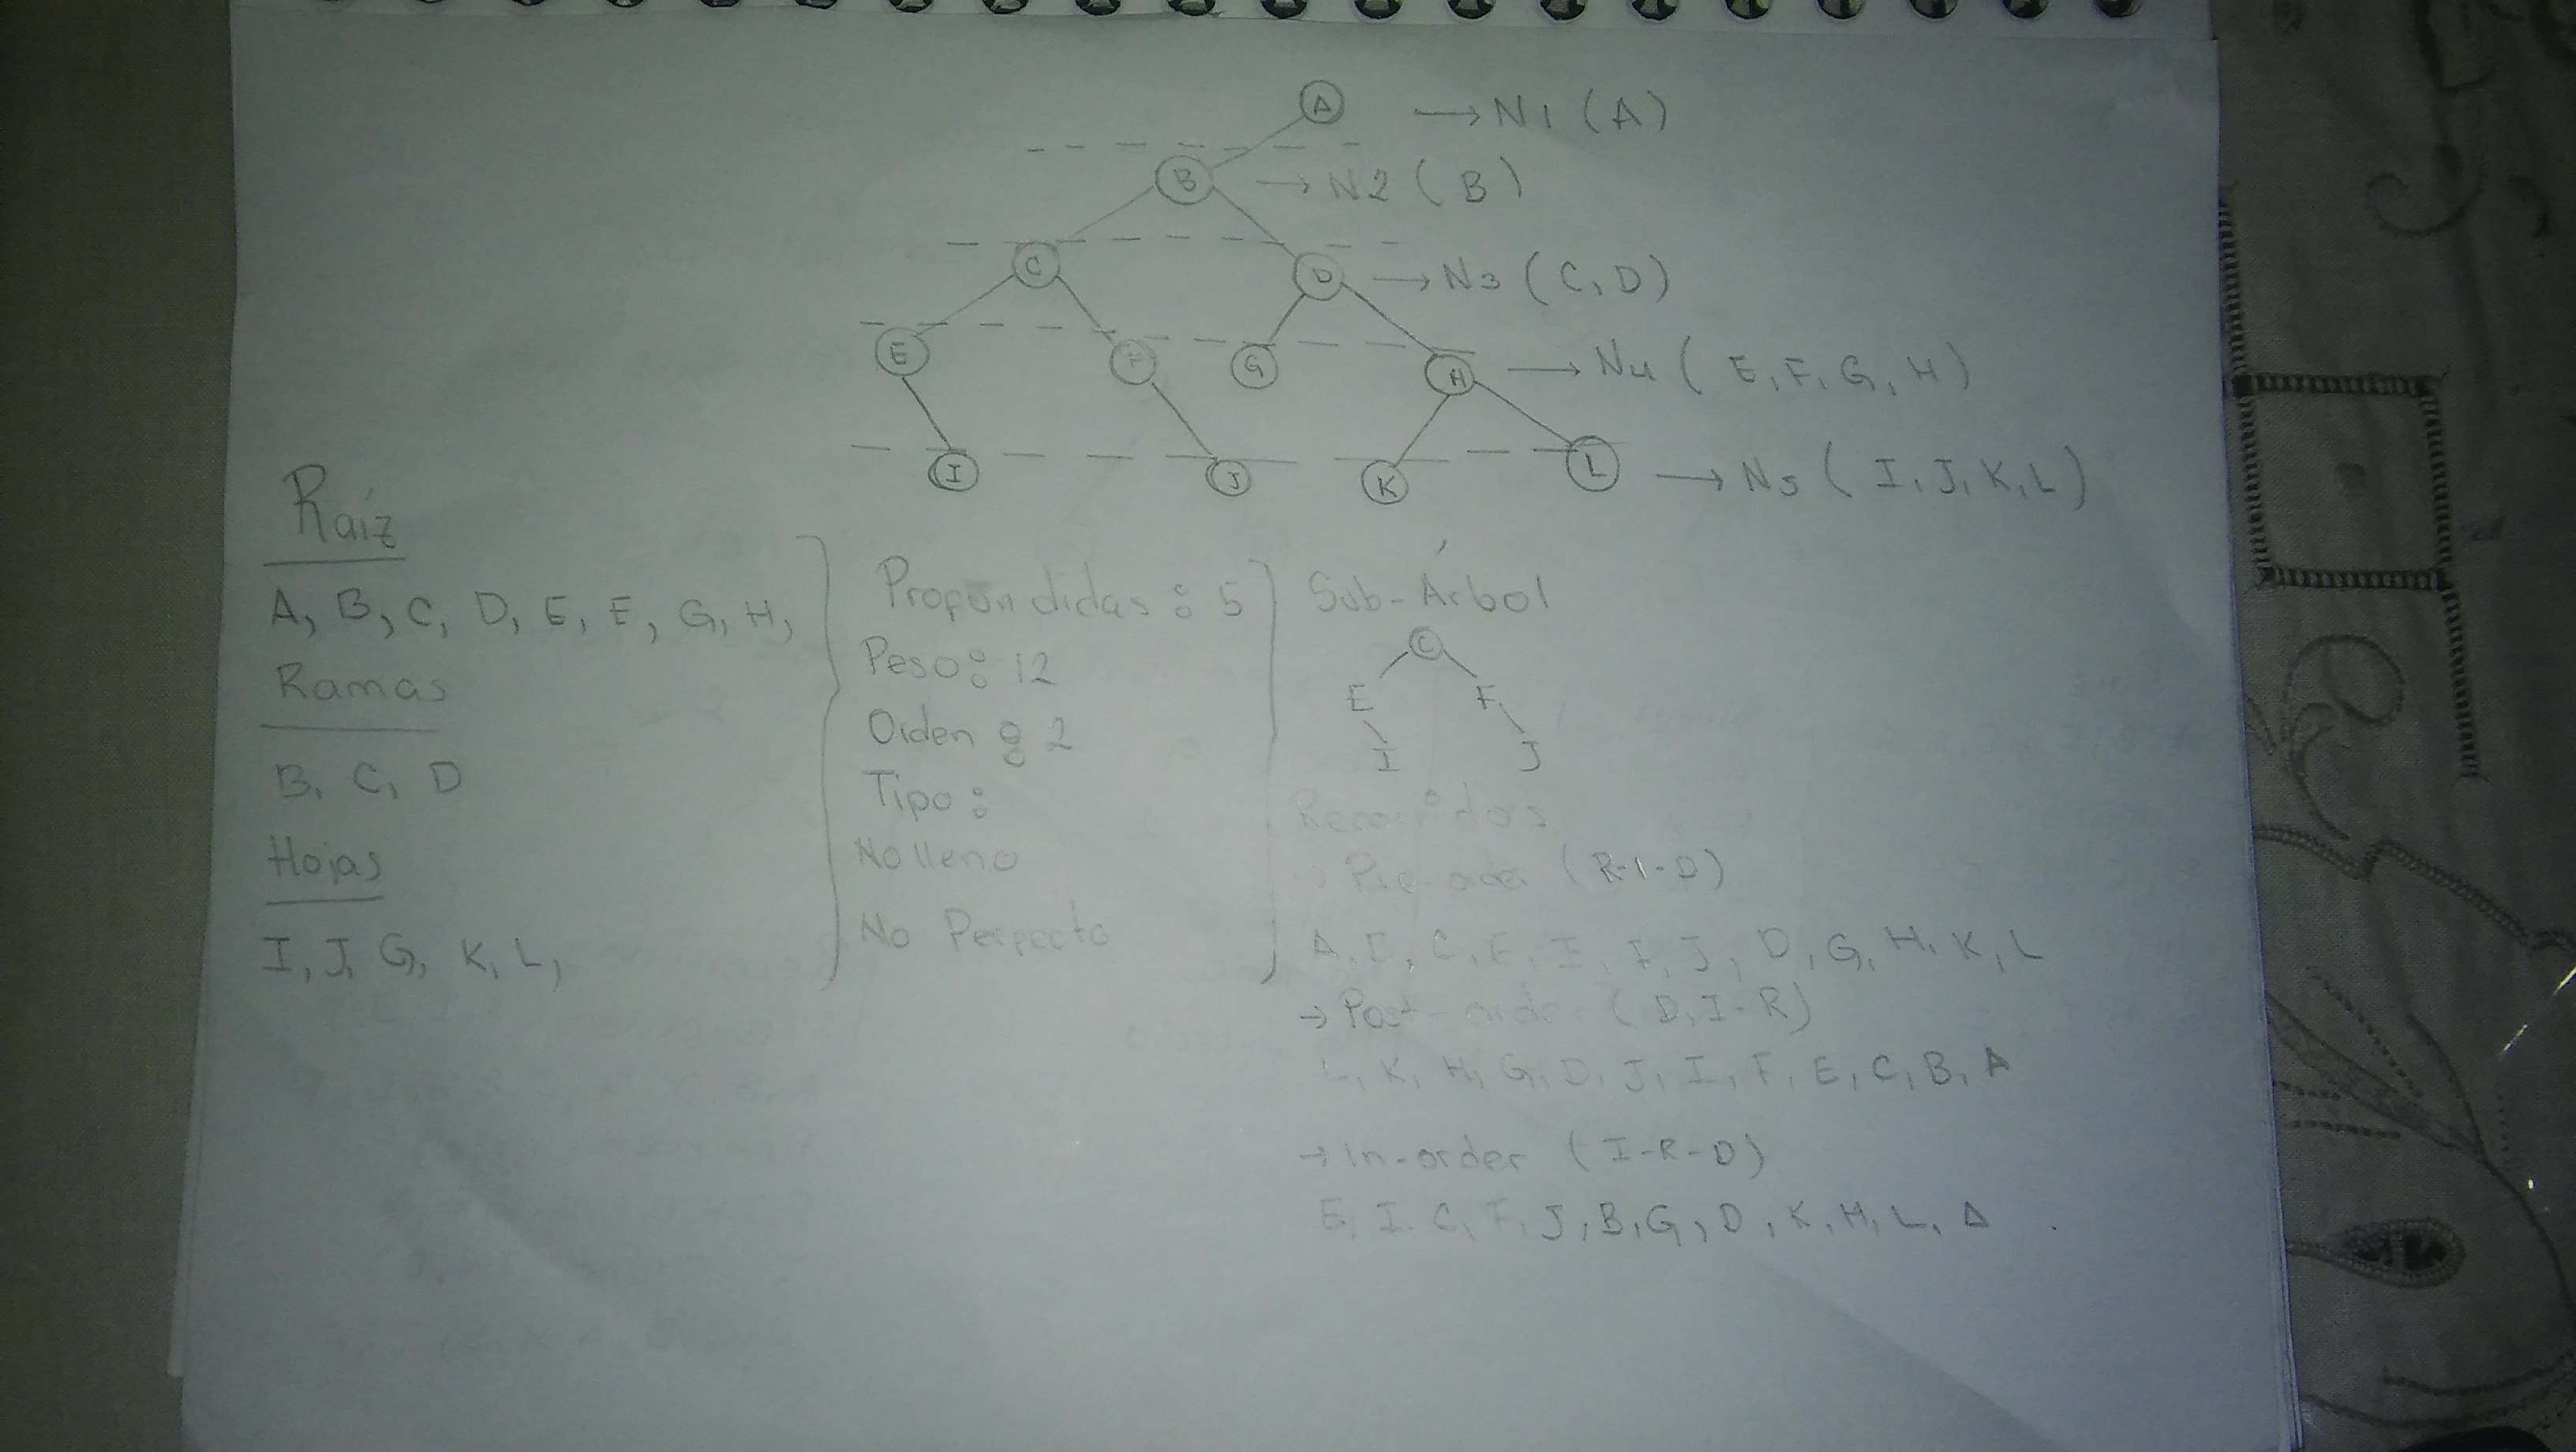 A → N1 (A)
B → N2 (B)
C D → N3 (C, D)
E F G H → N4 (E, F, G, H)
I J K L → N5 (I, J, K, L)
Raíz
A, B, C, D, E, F, G, H,
Ramas
B, C, D
Hojas
I, J, G, K, L,
Profundidas : 5
Peso : 12
Orden : 2
Tipo :
No lleno
No Perfecto
Sub-Árbol
C
E F
I J
Recorridos
→ Pre-orden (R-I-D)
A, B, C, E, I, F, J, D, G, H, K, L
→ Post-orden (D, I-R)
L, K, H, G, D, J, I, F, E, C, B, A
→ In-order (I-R-D)
E, I, C, F, J, B, G, D, K, H, L, A